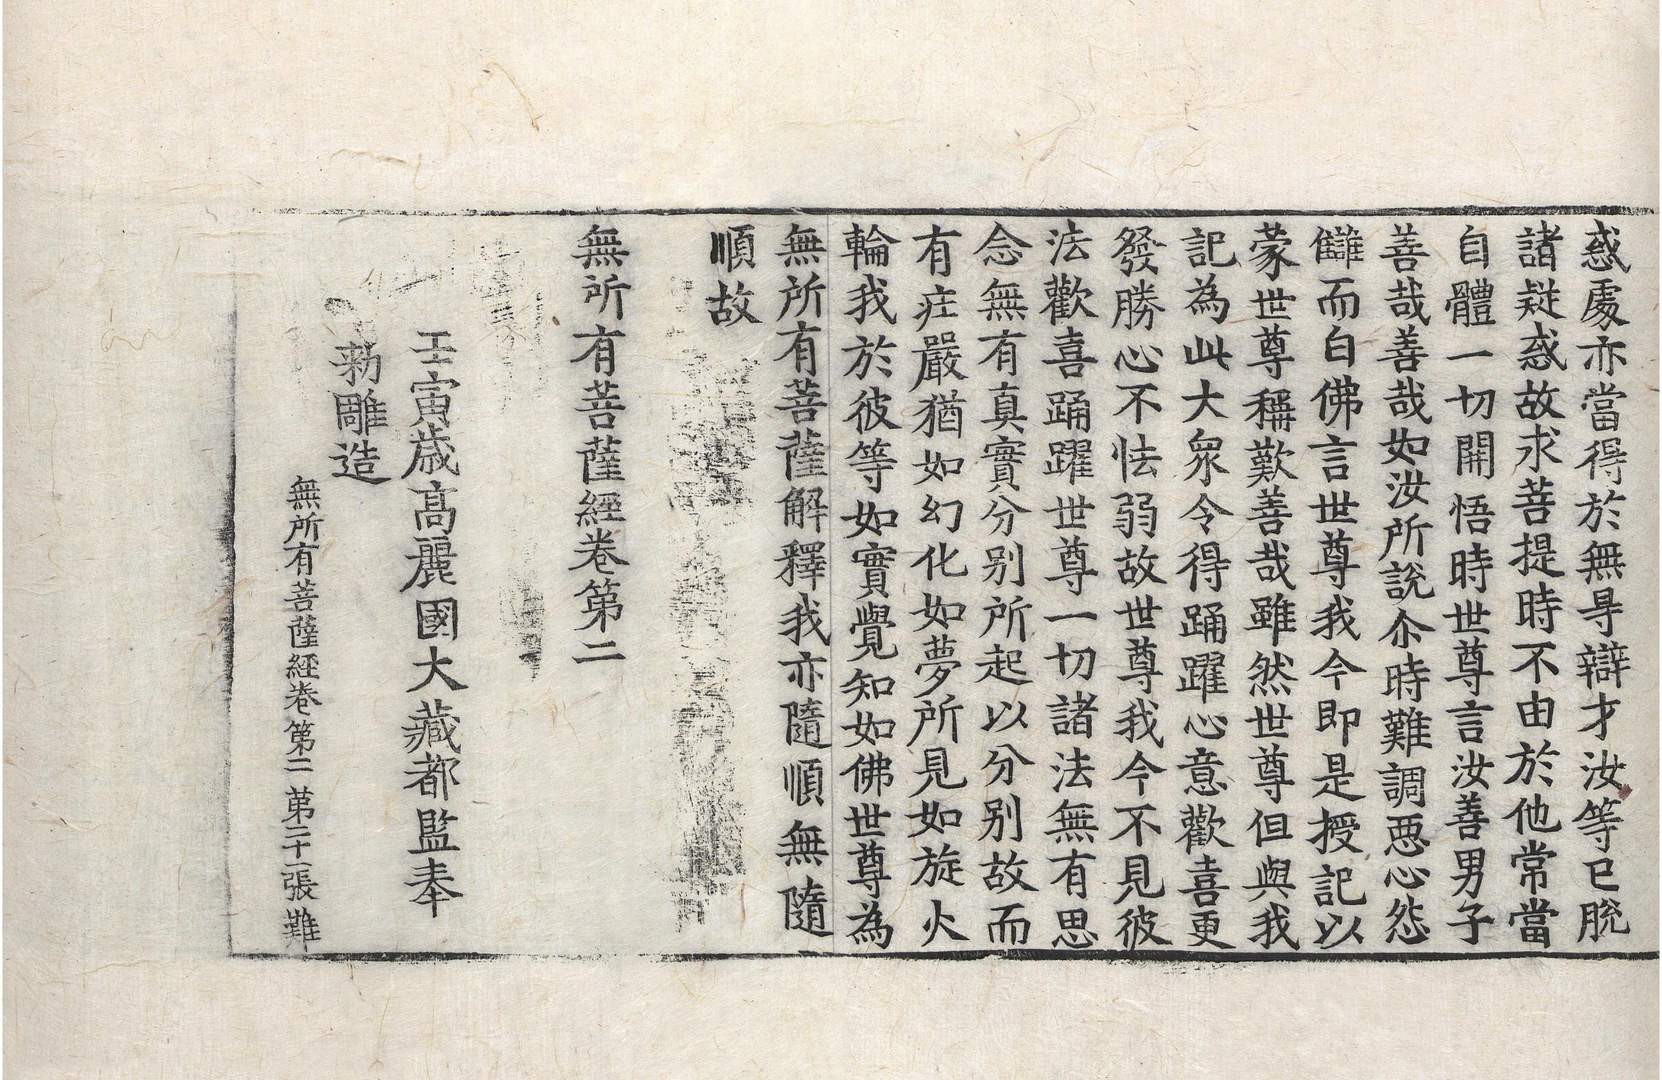 惑處亦當得於無㝵辯才汝等已脫
諸疑惑故求菩提時不由於他常當
自體一切開悟時世尊言汝善男子
善哉善哉如汝所說尒時難調惡心怨
讎而白佛言世尊我今即是授記以
蒙世尊稱歎善哉雖然世尊但與我
記為此大衆令得踊躍心意歡喜更
發勝心不怯弱故世尊我今不見彼
法歡喜踊躍世尊一切諸法無有思
念無有真實分别所起以分别故而
有庄嚴猶如幻化如夢所見如旋火
輪我於彼等如實覺知如佛世尊為
無所有菩薩解釋我亦隨順無隨
順故
無所有菩薩經卷第二
壬寅歳高麗國大藏都監奉
勑雕造
無所有菩薩經卷第二 第二十一張 難